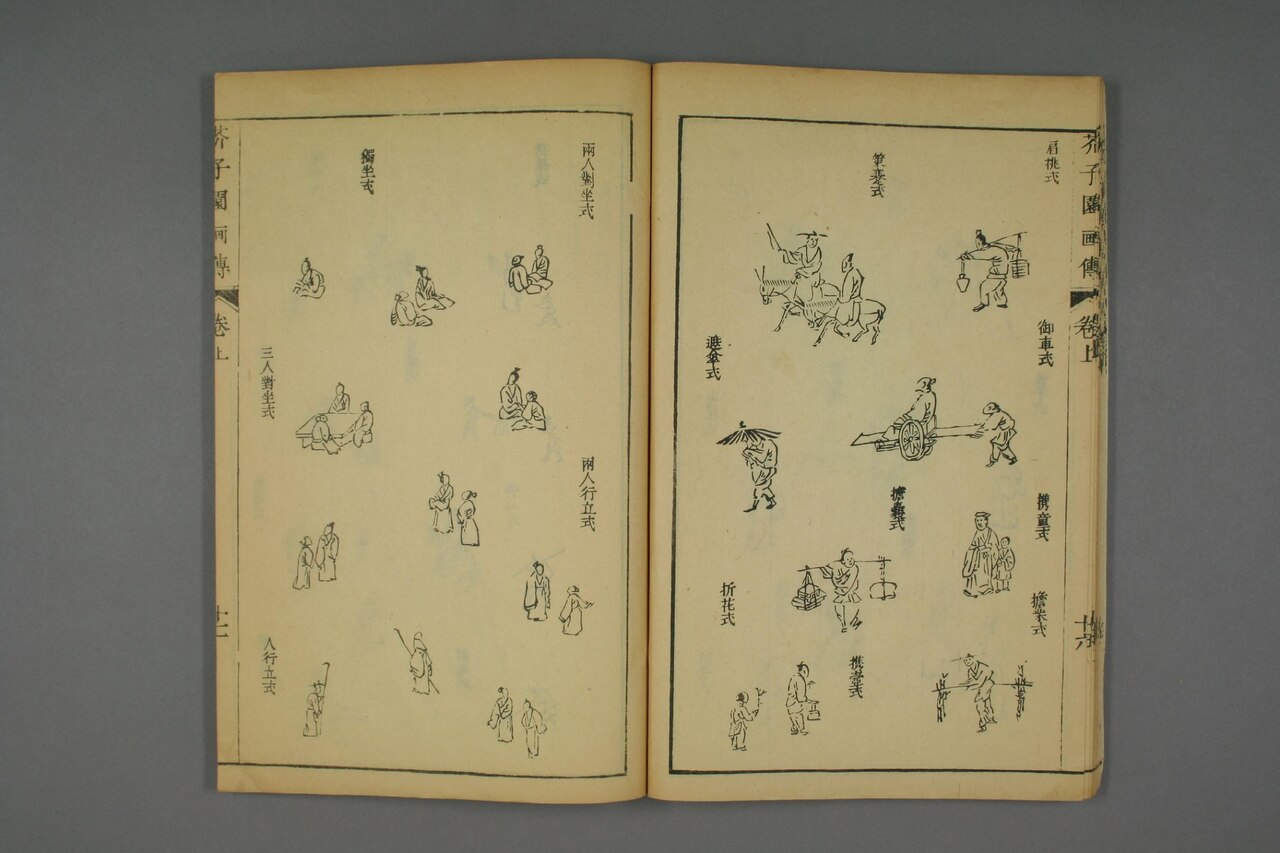 芥子園画傳
卷上
十六
肩挑式
策蹇式
御車式
遮傘式
携童式
擔柴式
折花式
携壺式
兩人對坐式
獨坐式
兩人行立式
三人對坐式
人行立式
芥子園画傳
卷上